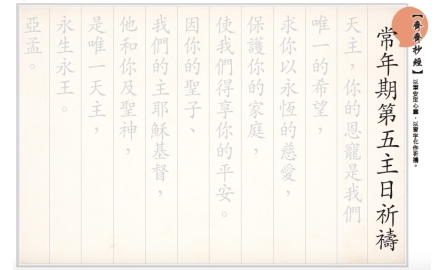 【夯夯抄經】
以筆安定心靈，以書字化作祈禱。
常年期第五主日祈禱
天主，你的恩寵是我們
唯一的希望，
求你以永恆的慈愛，
保護你的家庭，
使我們得享你的平安。
因你的聖子、
我們的主耶穌基督，
他和你及聖神，
是唯一天主，
永生永王。
亞孟。